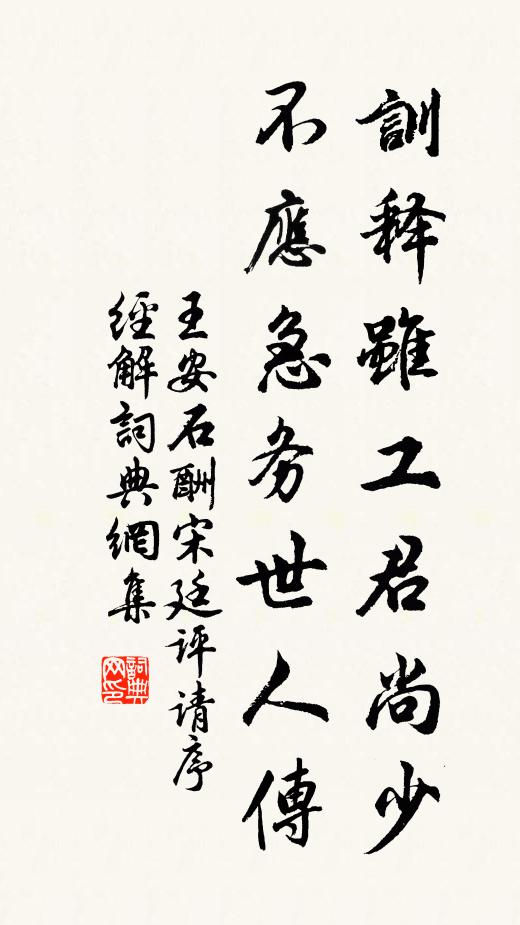 訓释雖工君尚少
不應急务世人傳
王安石酬宋廷评请序
經解詞典網集
詞典网印